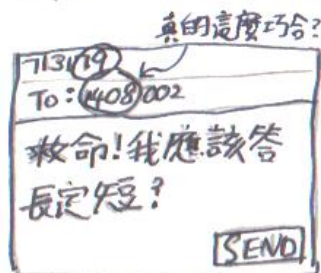 真的這麼巧合?
713119
To: 1408002
救命!我應該答
長定短?
SEND